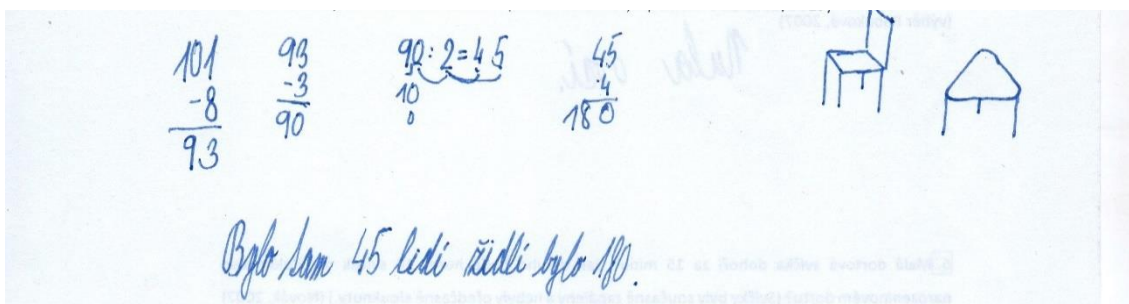 101
-8
93
93
-3
90
90:2=45
10
0
45
·4
180
Bylo tam 45 lidí židlí bylo 180.